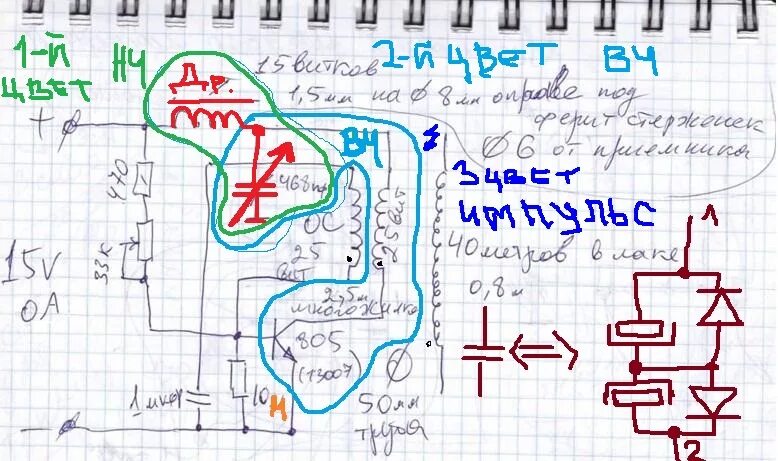 1-й
цвет
НЧ
2-й цвет ВЧ
Др.
15 витков
1,5мм на Ø 8мм оправе под
ферит стержонек
Ø 6 от приемника
+
ВЧ
468пф
470
33к
15V
0А
ОС
25
вит
25 вит
2,5м
многожилка
3 цвет
импульс
40 метров в лаке
0,8м
805
(13007)
1мкф
10
м
Ø
50мм
труба
1
2